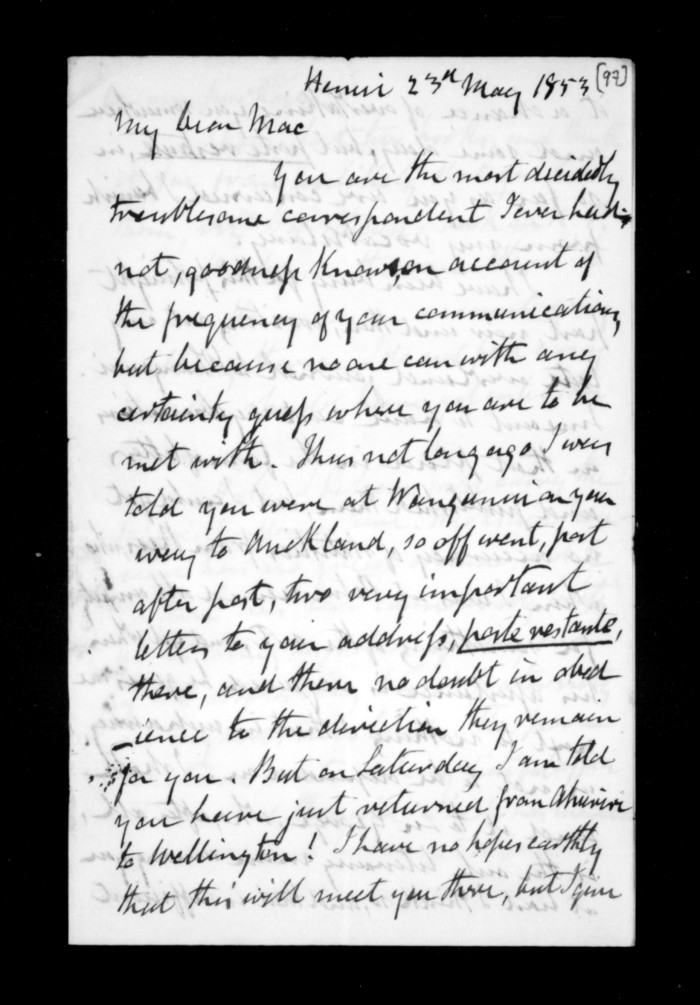 Henui 23rd May 1853 (97)
My Dear Mac
You are the most decidedly
troublesome correspondent I ever had,
not, goodness knows, on account of
the frequency of your communications,
but because no one can with any
certainty guess where you are to be
met with. Thus not long ago I was
told you were at Wanganui on your
way to Auckland, so off went, post
after post, two very important
letters to your address, poste restante,
there, and there no doubt in obed
-ience to the direction they remain
for you. But on Saturday I am told
you have just returned from Ahuriri
to Wellington! I have no hopes earthly
that this will meet you there, but I give